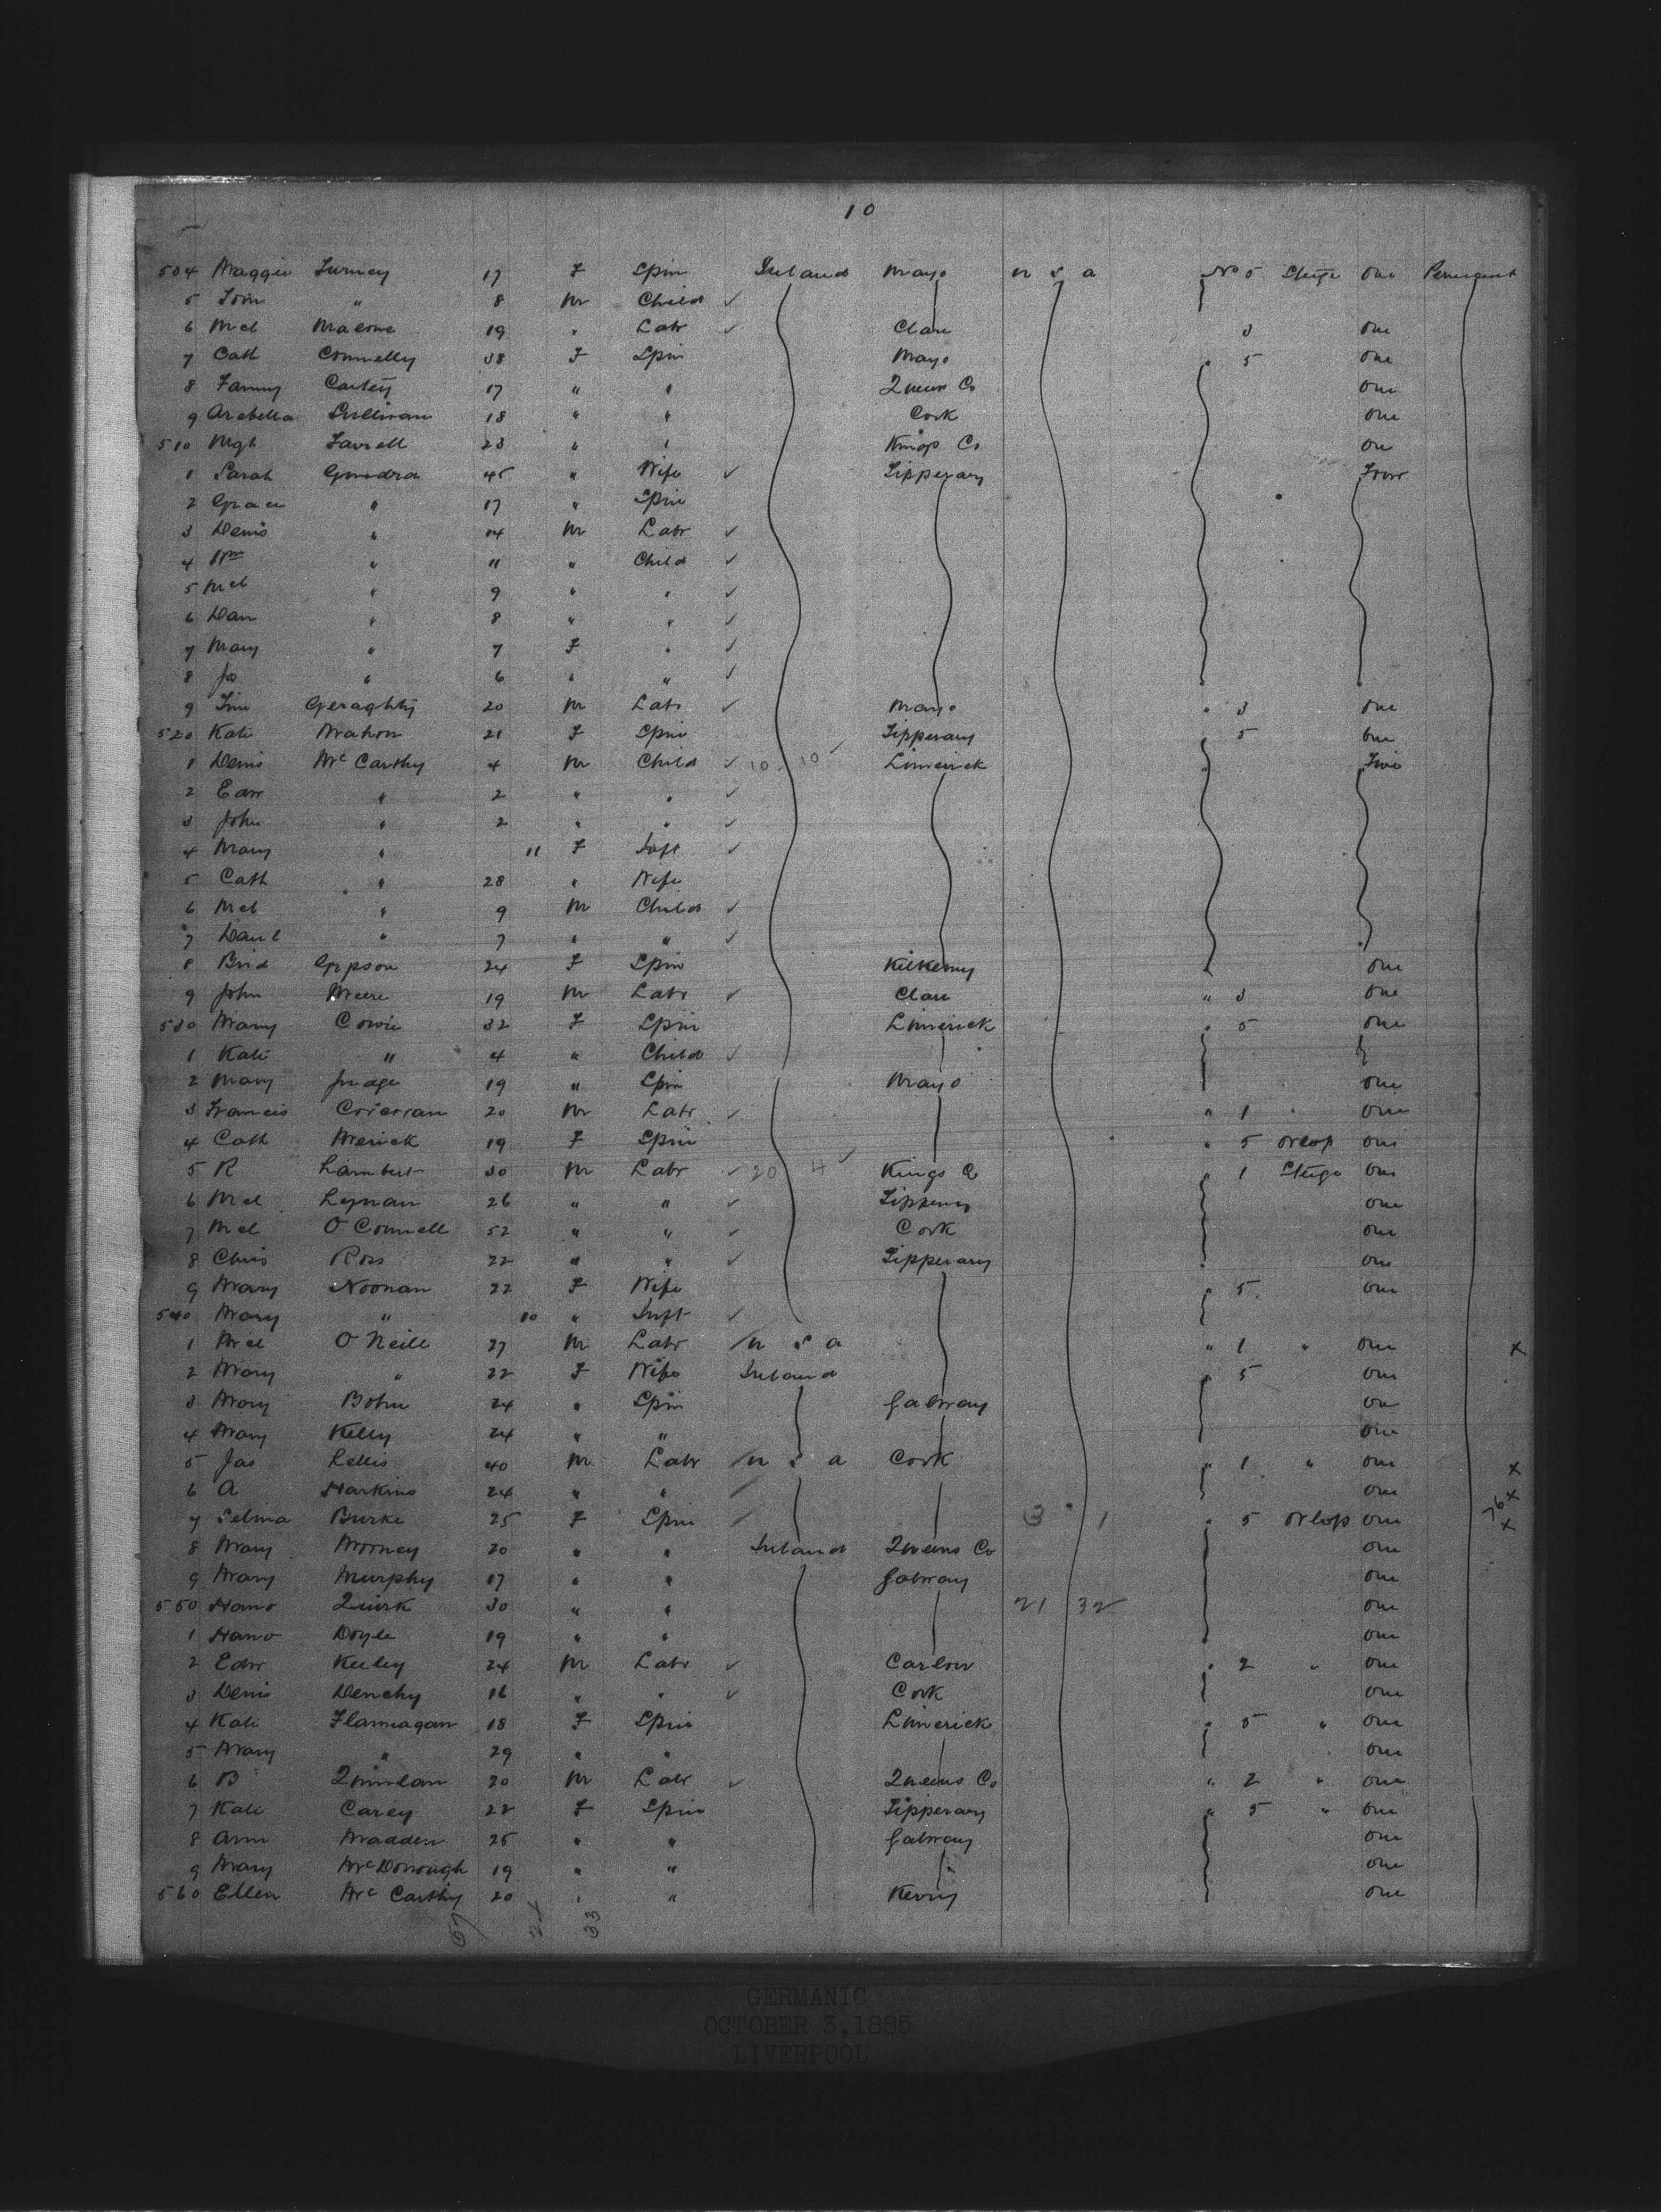 10
504 Maggie Turney 17 F Spin Ireland Mayo U S A No 5 Stege One Permanent
5 Tom " 8 M Child ✓
6 Mcl Malone 19 " Labr ✓ Clare 3 One
7 Cath Connelly 38 F Spin Mayo " 5 One
8 Fanny Cartey 17 " " Queens Co One
9 Arabella Sullivan 18 " " Cork One
510 Mgt Farrell 23 " " Kings Co One
1 Sarah 45 " Wife ✓ Tipperary Four
2 Grace " 17 " Spin
3 Denis " 14 M Labr ✓
4 Wm " 11 " Child ✓
5 Mcl " 9 " " ✓
6 Dan " 8 " " ✓
7 Mary " 7 F " ✓
8 Jo " 6 " " ✓
9 Tim Geraghty 20 M Labr ✓ Mayo " 3 One
520 Kate Mahon 21 F Spin Tipperary " 5 One
1 Denis McCarthy 4 M Child ✓ 10 10 ✓ Limerick " Two
2 Edw " 2 " " ✓
3 John " 2 " " ✓
4 Mary " 11 F Inft ✓
5 Cath " 28 " Wife
6 Mcl " 9 M Child ✓
7 Danl " 7 " " ✓
8 Brid Gipson 24 F Spin Kilkenny One
9 John Meere 19 M Labr ✓ Clare " 3 One
530 Mary Cowie 32 F Spin Limerick " 5 One
1 Kate " 4 " Child ✓
2 Mary Judge 19 " Spin Mayo One
3 Francis Corcoran 20 M Labr ✓ " 1 " One
4 Cath Merick 19 F Spin " 5 Orlop One
5 R Lambert 30 M Labr ✓ 20 4 ✓ Kings Co " 1 Stege One
6 Mcl Lynan 26 " " ✓ Tipperary One
7 Mcl O'Connell 52 " " ✓ Cork One
8 Chris Ross 22 " " ✓ Tipperary One
9 Mary Noonan 22 F Wife " 5 One
540 Mary " 10 " Inft ✓
1 Mcl O'Neill 27 M Labr / U S A " 1 " One X
2 Mary " 22 F Wife Ireland " 5 One
3 Mary Bohn 24 " Spin Galway One
4 Mary Kelly 24 " " One
5 Jas Lellis 40 M Labr / U S A Cork " 1 " One X
6 A Harkins 24 " " / One X
7 Selina Burke 25 F Spin / 3 1 " 5 Orlop One 76 X
8 Mary Mooney 20 " " Ireland Queens Co One
9 Mary Murphy 17 " " Galway One
550 Hano Quirk 30 " " 21 32 One
1 Hano Doyle 19 " " One
2 Edw Keeley 24 M Labr ✓ Carlow " 2 " One
3 Denis Denehy 16 " " ✓ Cork One
4 Kate Flannagan 18 F Spin Limerick " 5 " One
5 Mary " 29 " " One
6 B Quinlan 20 M Labr ✓ Queens Co " 2 " One
7 Kate Carey 22 F Spin Tipperary " 5 " One
8 Ann Madden 25 " " Galway One
9 Mary McDonough 19 " " One
560 Ellen McCarthy 20 " " Kerry One
57 24 33
GERMANIC
OCTOBER 3,1885
LIVERPOOL